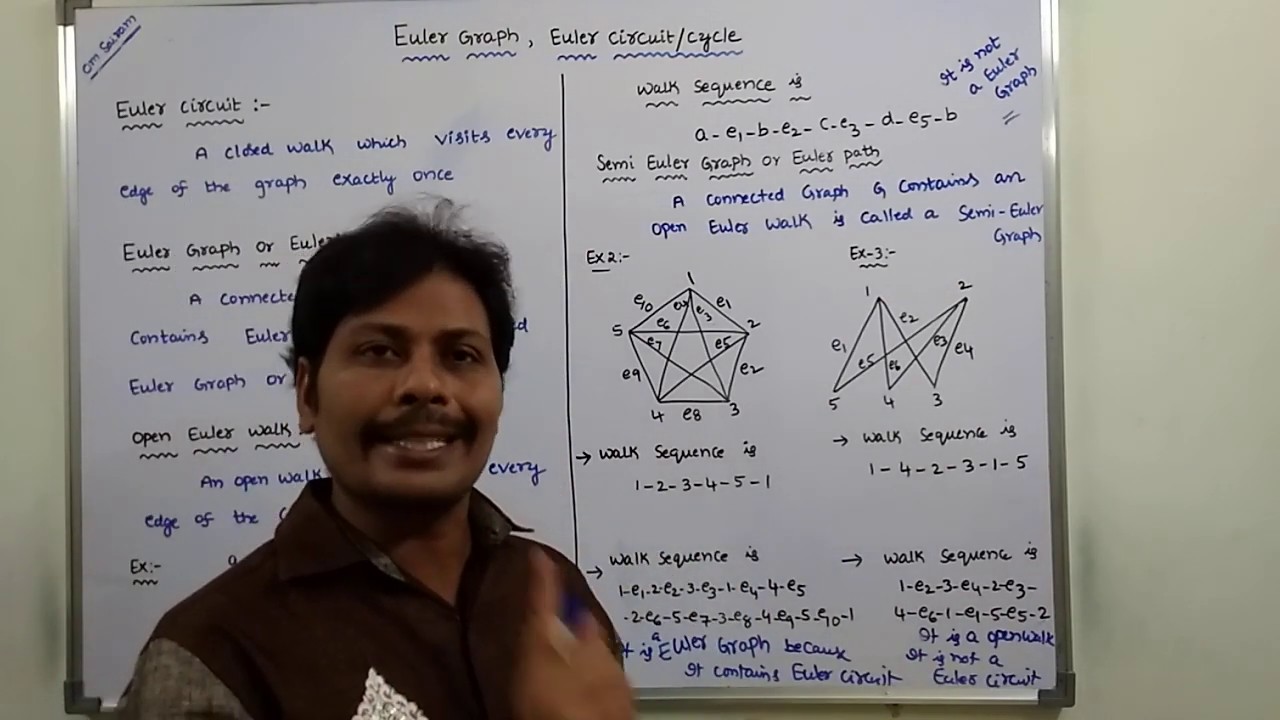 Om Sairam
Euler Graph, Euler circuit/cycle
Euler circuit :-
A closed walk which visits every
edge of the graph exactly once
Euler Graph or Euler
A connecte
Contains Euler
Euler Graph or
open Euler walk
An open walk every
edge of the
Ex:-
a
walk sequence is
a-e1-b-e2-c-e3-d-e5-b
It is not
a Euler
Graph
Semi Euler Graph or Euler path
A connected Graph G contains an
open Euler walk is called a Semi-Euler
Graph
Ex2:-
1
e10 e4 e3 e1
5 e6 2
e7 e5
e9 e2
4 e8 3
→ walk sequence is
1-2-3-4-5-1
→ walk sequence is
1-e1-2-e2-3-e3-1-e4-4-e5
-2-e6-5-e7-3-e8-4-e9-5-e10-1
It is a Euler Graph because
It contains Euler circuit
Ex-3:-
1 2
e2
e1 e5 e6 e3 e4
5 4 3
→ walk sequence is
1-4-2-3-1-5
→ walk sequence is
1-e2-3-e4-2-e3-
4-e6-1-e1-5-e5-2
It is a openwalk
It is not a
Euler circuit